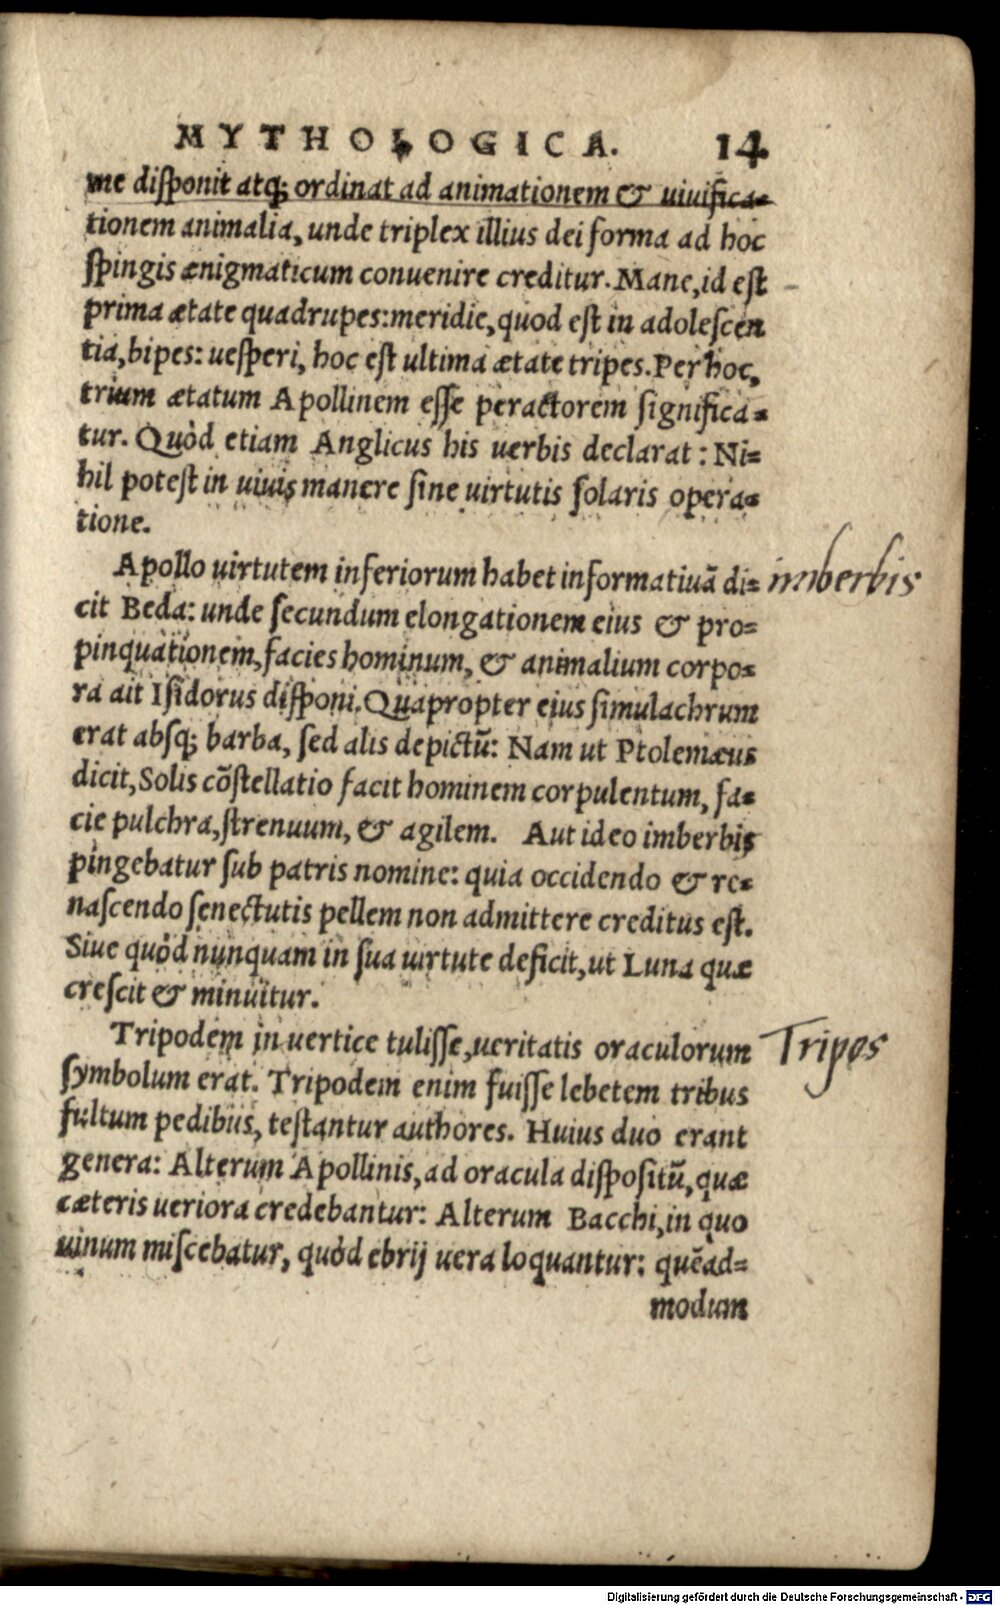 MYTHOLOGICA. 14
me disponit atq; ordinat ad animationem & uiuifica=
tionem animalia, unde triplex illius dei forma ad hoc
spingis ænigmaticum conuenire creditur. Mane, id est
prima ætate quadrupes: meridie, quod est in adolescen
tia, bipes: uesperi, hoc est ultima ætate tripes. Per hoc,
trium ætatum Apollinem esse peractorem significa=
tur. Quòd etiam Anglicus his uerbis declarat: Ni=
hil potest in uiuis manere sine uirtutis solaris opera=
tione.
Apollo uirtutem inferiorum habet informatiuã di= imberbis
cit Beda: unde secundum elongationem eius & pro=
pinquationem, facies hominum, & animalium corpo=
ra ait Isidorus disponi. Quapropter eius simulachrum
erat absq; barba, sed alis depictũ: Nam ut Ptolemæus
dicit, Solis cõstellatio facit hominem corpulentum, fa=
cie pulchra, strenuum, & agilem. Aut ideo imberbis
pingebatur sub patris nomine: quia occidendo & re=
nascendo senectutis pellem non admittere creditus est.
Siue quòd nunquam in sua uirtute deficit, ut Luna quæ
crescit & minuitur.
Tripodem in uertice tulisse, ueritatis oraculorum Tripos
symbolum erat. Tripodem enim fuisse lebetem tribus
fultum pedibus, testantur authores. Huius duo erant
genera: Alterum Apollinis, ad oracula dispositũ, quæ
cæteris ueriora credebantur: Alterum Bacchi, in quo
uinum miscebatur, quòd ebrij uera loquantur: quẽad=
modum
Digitalisierung gefördert durch die Deutsche Forschungsgemeinschaft - DFG